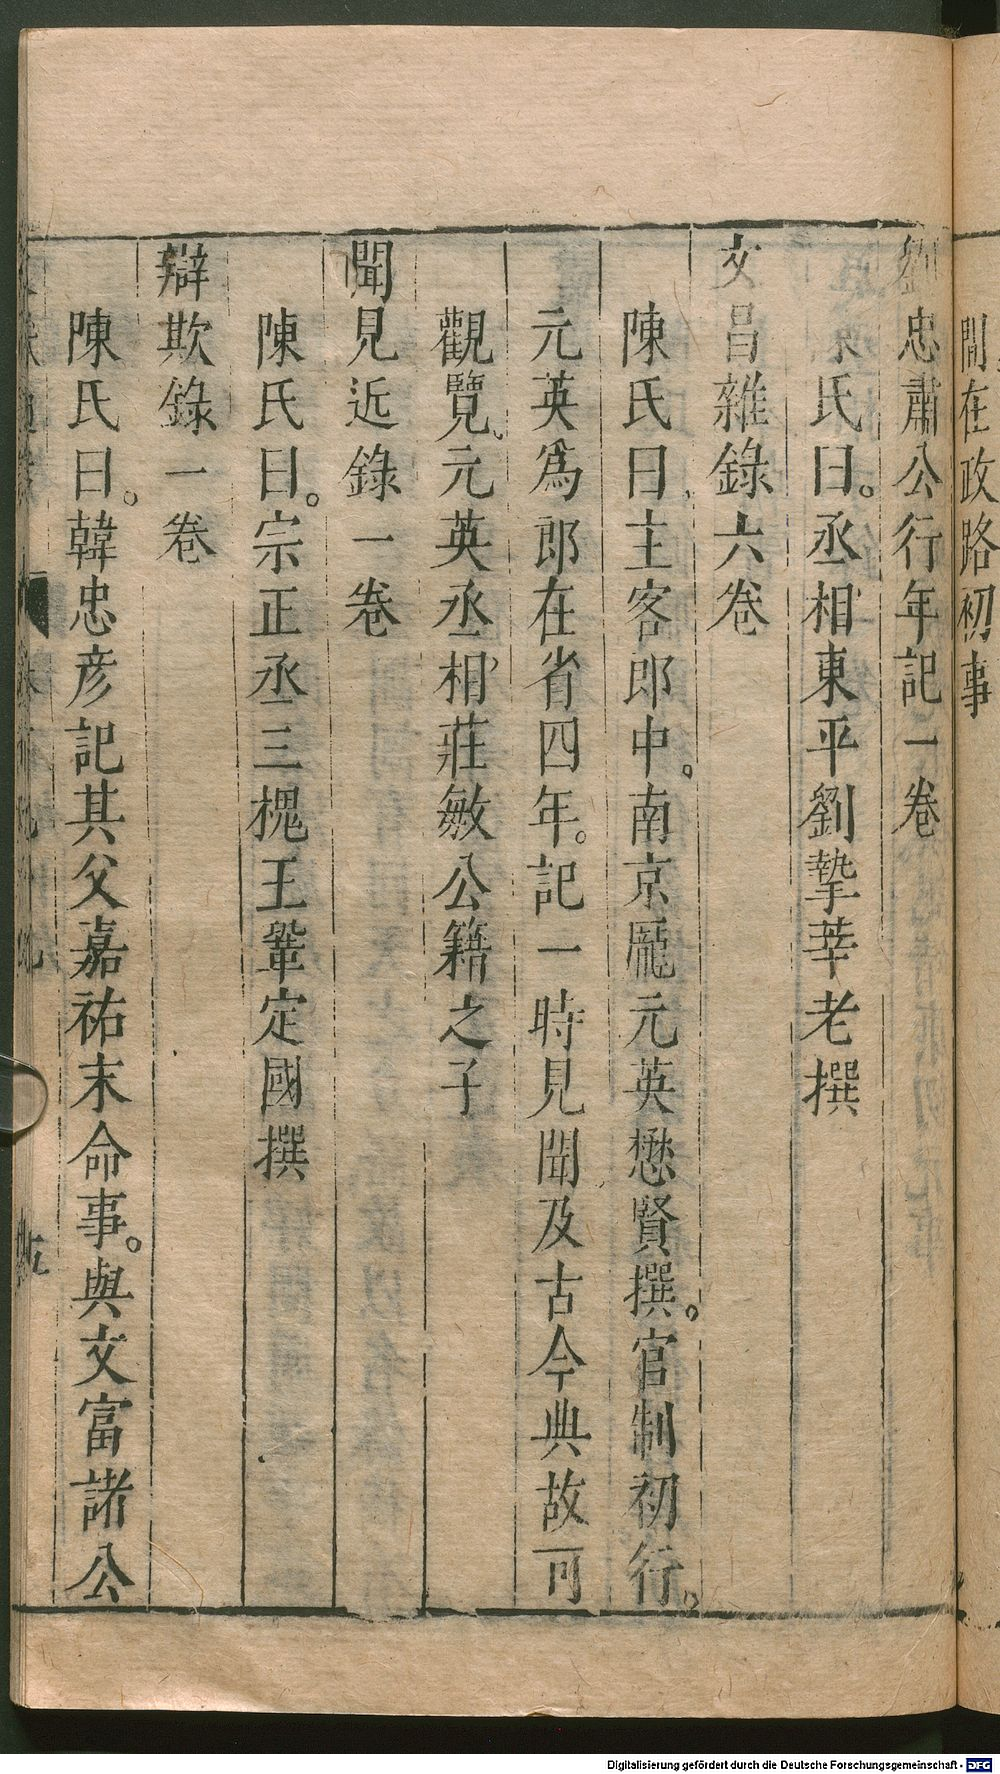 間在政路初事
劉忠肅公行年記一卷
陳氏曰。丞相東平劉摯莘老撰
文昌雜錄六卷
陳氏曰、主客郎中。南京龎元英懋賢撰。官制初行。
元英爲郎在省四年。記一時見聞及古今典故可
觀覽、元英丞相莊敏公籍之子
聞見近錄一卷
陳氏曰。宗正丞三槐王鞏定國撰
辯欺錄一卷
陳氏曰。韓忠彦記其父嘉祐末命事。與文富諸公
Digitalisierung gefördert durch die Deutsche Forschungsgemeinschaft - DFG